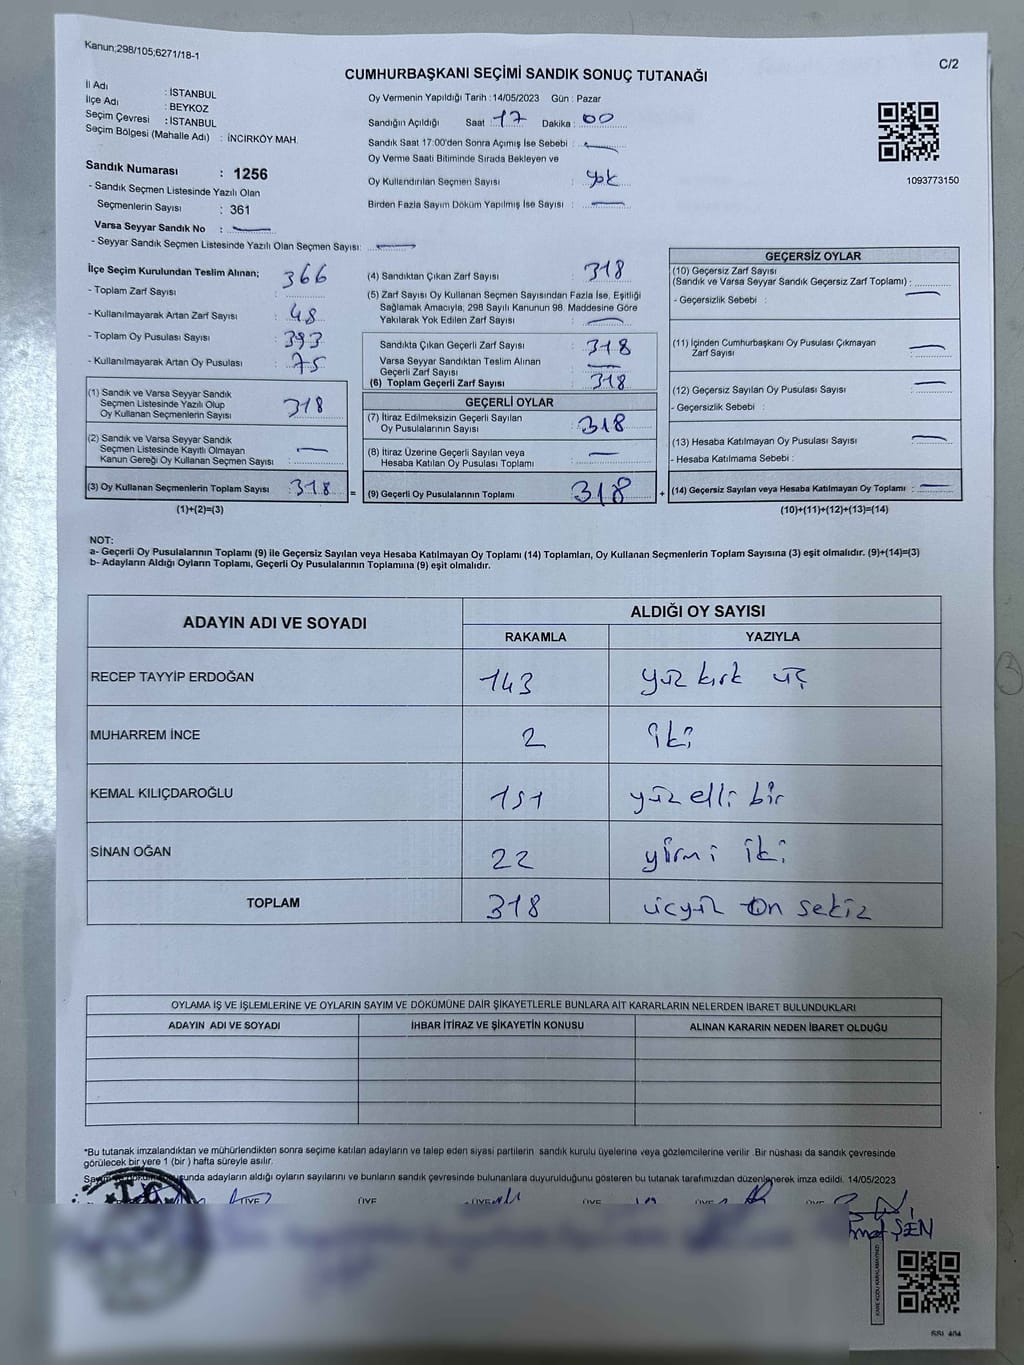 Kanun;298/105;6271/18-1
C/2
CUMHURBAŞKANI SEÇİMİ SANDIK SONUÇ TUTANAĞI
İl Adı : İSTANBUL
İlçe Adı : BEYKOZ
Seçim Çevresi : İSTANBUL
Seçim Bölgesi (Mahalle Adı) : İNCİRKÖY MAH.
Oy Vermenin Yapıldığı Tarih :14/05/2023 Gün : Pazar
Sandığın Açıldığı Saat : 17 Dakika : 00
Sandık Saat 17:00'den Sonra Açımış İse Sebebi : —
Oy Verme Saati Bitiminde Sırada Bekleyen ve
Oy Kullandırılan Seçmen Sayısı : yok
Birden Fazla Sayım Döküm Yapılmış İse Sayısı : —
1093773150
Sandık Numarası : 1256
- Sandık Seçmen Listesinde Yazılı Olan
Seçmenlerin Sayısı : 361
Varsa Seyyar Sandık No : —
- Seyyar Sandık Seçmen Listesinde Yazılı Olan Seçmen Sayısı: —
İlçe Seçim Kurulundan Teslim Alınan;
- Toplam Zarf Sayısı : 366
- Kullanılmayarak Artan Zarf Sayısı : 48
- Toplam Oy Pusulası Sayısı : 393
- Kullanılmayarak Artan Oy Pusulası : 75
(1) Sandık ve Varsa Seyyar Sandık
Seçmen Listesinde Yazılı Olup
Oy Kullanan Seçmenlerin Sayısı : 318
(2) Sandık ve Varsa Seyyar Sandık
Seçmen Listesinde Kayıtlı Olmayan
Kanun Gereği Oy Kullanan Seçmen Sayısı : —
(3) Oy Kullanan Seçmenlerin Toplam Sayısı : 318
(1)+(2)=(3)
=
(4) Sandıktan Çıkan Zarf Sayısı : 318
(5) Zarf Sayısı Oy Kullanan Seçmen Sayısından Fazla İse, Eşitliği
Sağlamak Amacıyla, 298 Sayılı Kanunun 98. Maddesine Göre
Yakılarak Yok Edilen Zarf Sayısı : —
Sandıkta Çıkan Geçerli Zarf Sayısı : 318
Varsa Seyyar Sandıktan Teslim Alınan
Geçerli Zarf Sayısı : —
(6) Toplam Geçerli Zarf Sayısı : 318
GEÇERLİ OYLAR
(7) İtiraz Edilmeksizin Geçerli Sayılan
Oy Pusulalarının Sayısı : 318
(8) İtiraz Üzerine Geçerli Sayılan veya
Hesaba Katılan Oy Pusulası Toplamı : —
(9) Geçerli Oy Pusulalarının Toplamı : 318
+
GEÇERSİZ OYLAR
(10) Geçersiz Zarf Sayısı
(Sandık ve Varsa Seyyar Sandık Geçersiz Zarf Toplamı) : —
- Geçersizlik Sebebi :
(11) İçinden Cumhurbaşkanı Oy Pusulası Çıkmayan
Zarf Sayısı : —
(12) Geçersiz Sayılan Oy Pusulası Sayısı : —
- Geçersizlik Sebebi :
(13) Hesaba Katılmayan Oy Pusulası Sayısı : —
- Hesaba Katılmama Sebebi :
(14) Geçersiz Sayılan veya Hesaba Katılmayan Oy Toplamı : —
(10)+(11)+(12)+(13)=(14)
NOT:
a- Geçerli Oy Pusulalarının Toplamı (9) ile Geçersiz Sayılan veya Hesaba Katılmayan Oy Toplamı (14) Toplamları, Oy Kullanan Seçmenlerin Toplam Sayısına (3) eşit olmalıdır. (9)+(14)=(3)
b- Adayların Aldığı Oyların Toplamı, Geçerli Oy Pusulalarının Toplamına (9) eşit olmalıdır.
ADAYIN ADI VE SOYADI ALDIĞI OY SAYISI
RAKAMLA YAZIYLA
RECEP TAYYİP ERDOĞAN 143 yüz kırk üç
MUHARREM İNCE 2 iki
KEMAL KILIÇDAROĞLU 151 yüz elli bir
SİNAN OĞAN 22 yirmi iki
TOPLAM 318 üçyüz on sekiz
3
OYLAMA İŞ VE İŞLEMLERİNE VE OYLARIN SAYIM VE DÖKÜMÜNE DAİR ŞİKAYETLERLE BUNLARA AİT KARARLARIN NELERDEN İBARET BULUNDUKLARI
ADAYIN ADI VE SOYADI İHBAR İTİRAZ VE ŞİKAYETİN KONUSU ALINAN KARARIN NEDEN İBARET OLDUĞU
*Bu tutanak imzalandıktan ve mühürlendikten sonra seçime katılan adayların ve talep eden siyasi partilerin sandık kurulu üyelerine veya gözlemcilerine verilir. Bir nüshası da sandık çevresinde
görülecek bir yere 1 (bir ) hafta süreyle asılır.
adayların aldığı oyların sayılarını ve bunların sandık çevresinde bulunanlara duyurulduğunu gösteren bu tutanak tarafımızdan düzenlenerek imza edildi. 14/05/2023
T.C.
ÜYE ÜYE ÜYE ÜYE ÜYE ÜYE
ŞEN